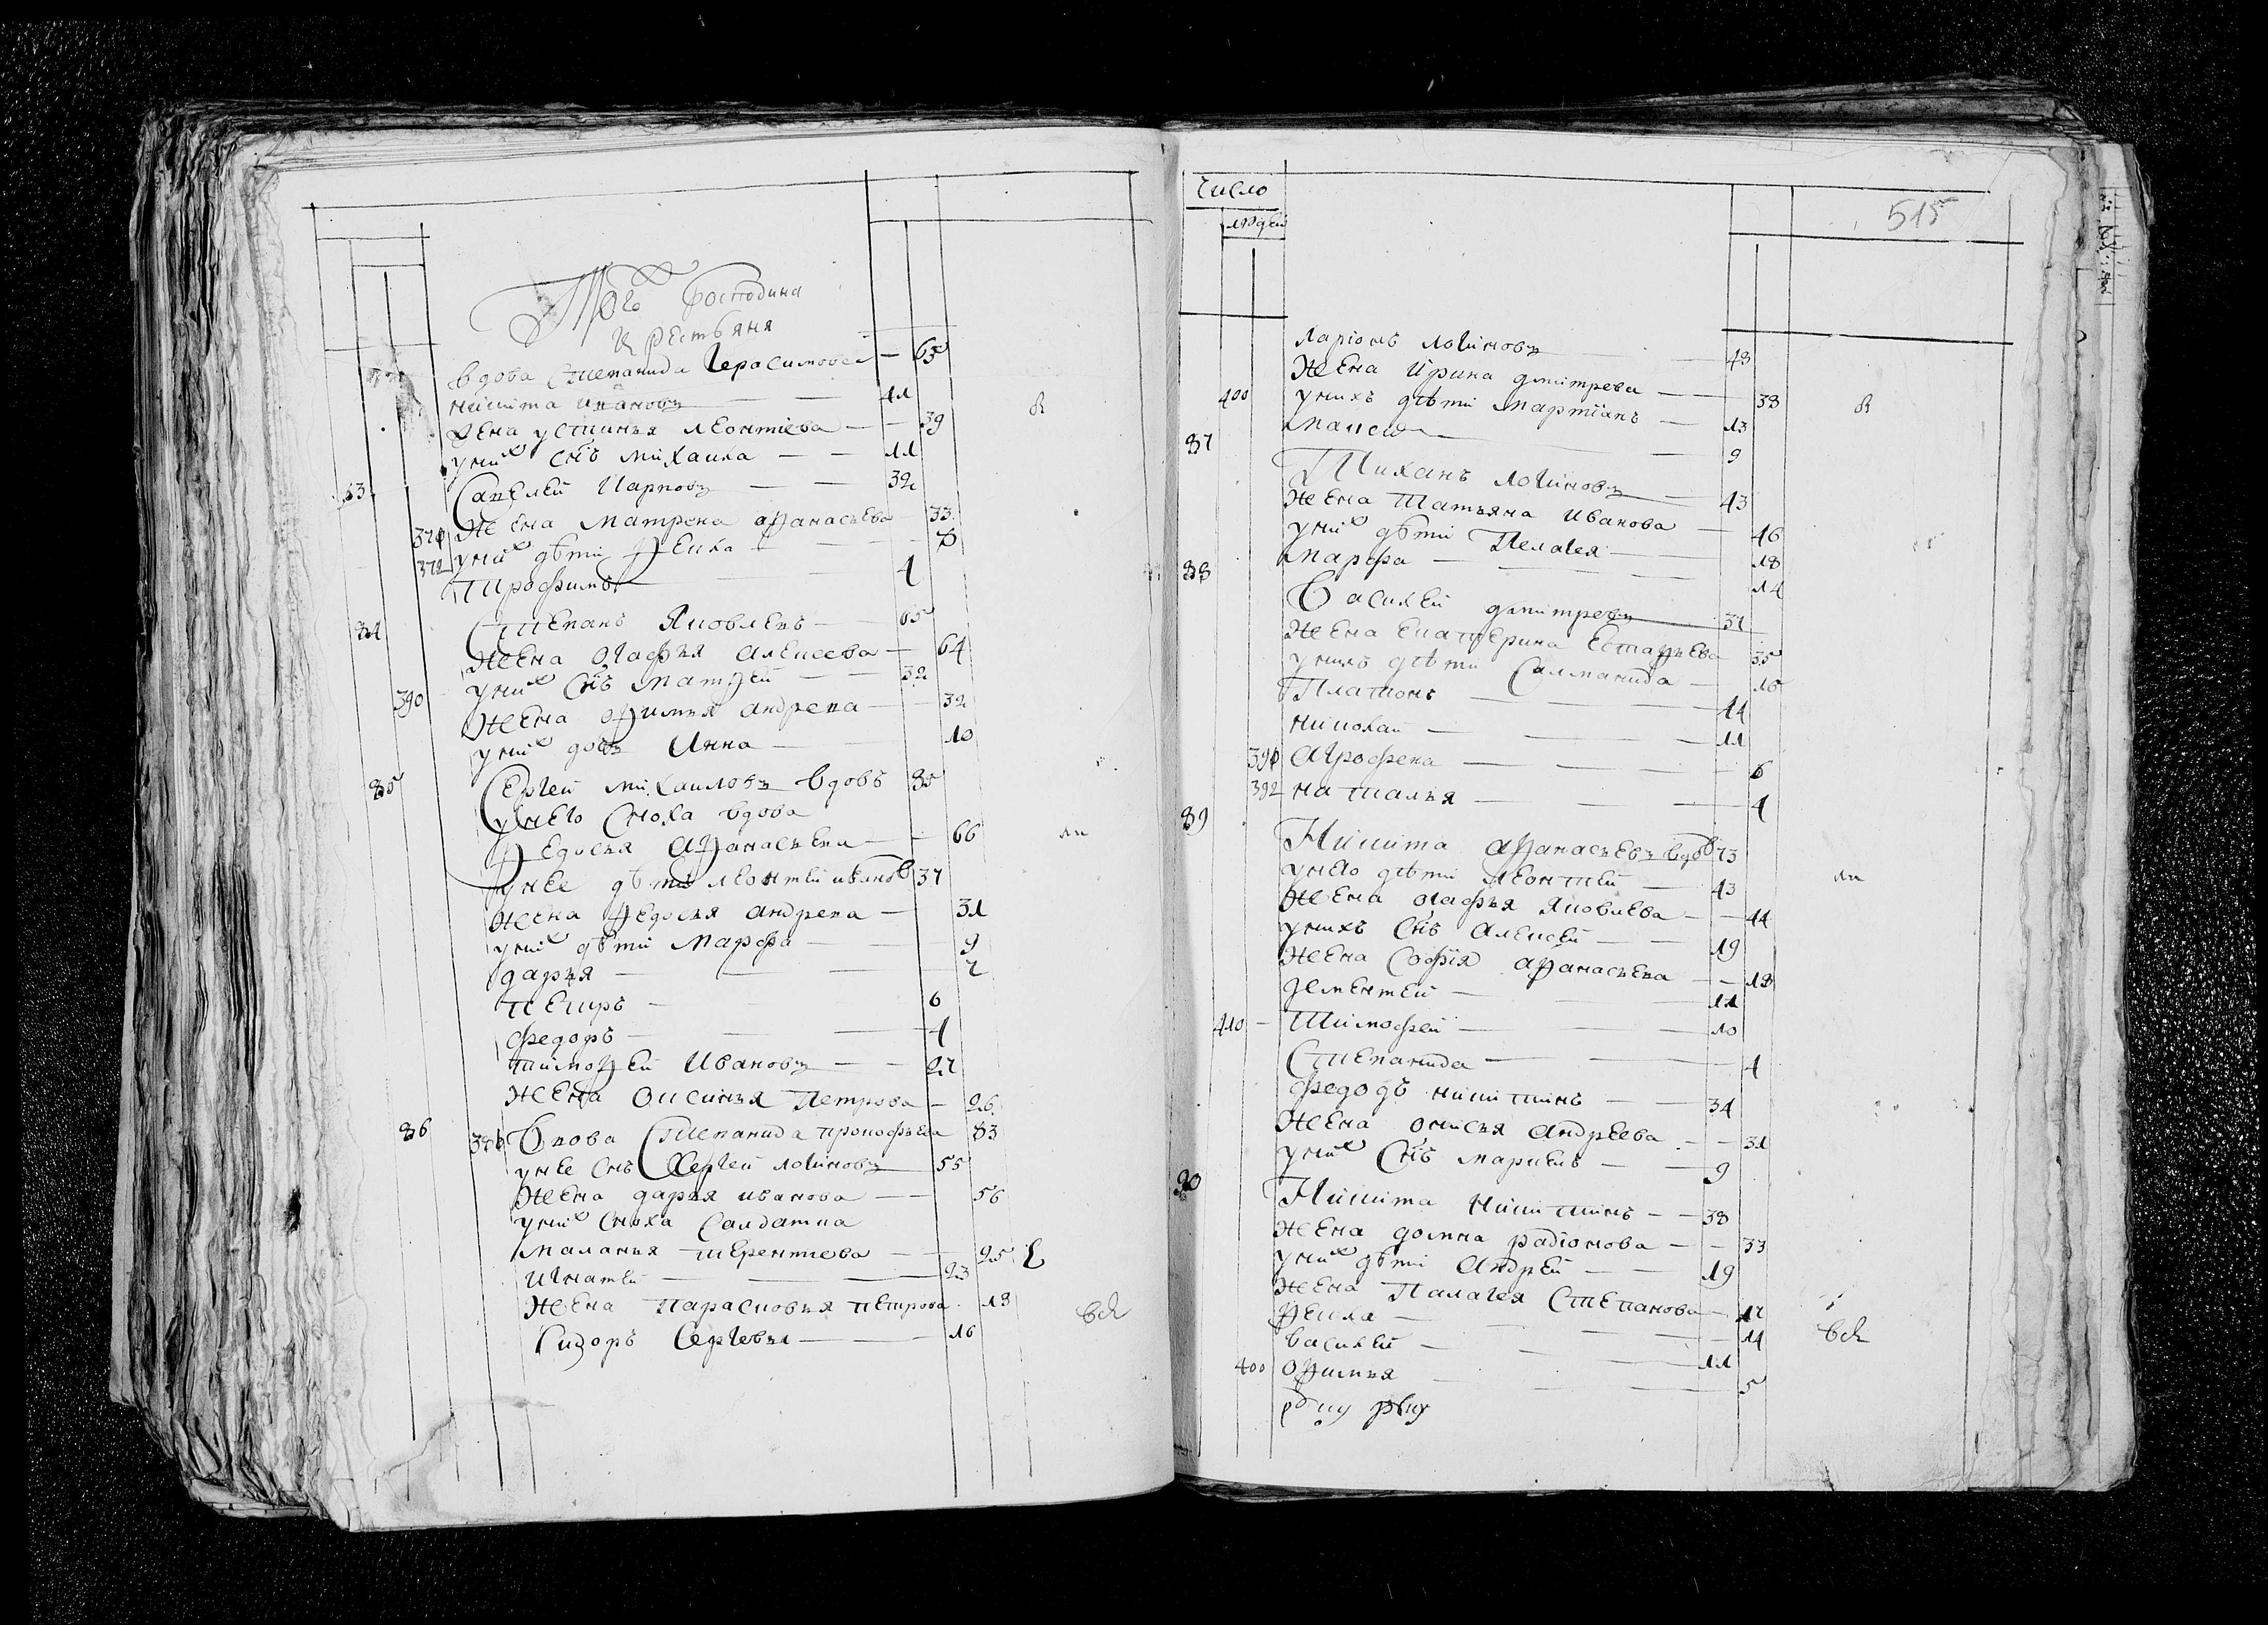 Того Господина
крестьяня
вдова Степанида Герасимова — 65
никита ивановъ — 41
жена устинья леонтiева — 39
у них снъ михаила — 11
83 Савелей Карповъ — 32
жена Матрена афанасьева 33
372 у них дѣти Фекла — 8
Трофимъ — 4
84 Степанъ Яковлевъ — 65
жена Агафья алексеева — 64
у них снъ Матфей — 32
390 жена Офимья андреева — 32
у них дочь Анна — 10
85 Сергей михаиловъ вдовъ 85
у него сноха вдова
Федосья Афанасьева — 66 ли
у нее дѣти леонтей ивановъ 37
жена федосья андреева — 31
у них дѣти Марфа — 9
дарья — 7
петръ — 6
федоръ — 4
тимофей Ивановъ — 27
жена Оксинья Петрова — 26
86 Вдова Степанида прокофьева 83
у нее снъ Сергей логиновъ 55
жена дарья иванова — 56
у них сноха салдатка
маланья терентиева — 25
игнатей — 23
жена Парасковья петрова 18
Сидоръ Сергевъ — 16
515
число
людей
ларионъ логиновъ — 48
жена Ирина дмитрева — 38
400 у нихъ дѣти мартiанъ — 13
маисей — 9
87 Тиханъ логиновъ — 43
жена татьяна иванова — 46
у них дѣти Пелагея — 18
марфа — 14
88 Василей дмитревъ 37
жена Екатерина Естафьева 35
у нихъ дѣти Салманида — 15
Платонъ — 14
николай — 11
Агрофена — 6
392 наталья — 4
89 Никита афанасьевъ вдовъ 73
у него дѣти леонтей — 43 ли
жена агафья яковлева — 44
у нихъ снъ алексей — 19
жена Софiя афанасьева — 18
дементей — 11
410 — Тимофей — 10
Степанида — 4
федоръ никитинъ — 34
жена онисья андреева — 31
у них снъ маркелъ — 9
90 Никита никитинъ — 38
жена домна радiонова — 33
у них дѣти андрей — 19
жена Палагея Степанова — 17
Фекла — 14
василей — 11
400 офимья — 5